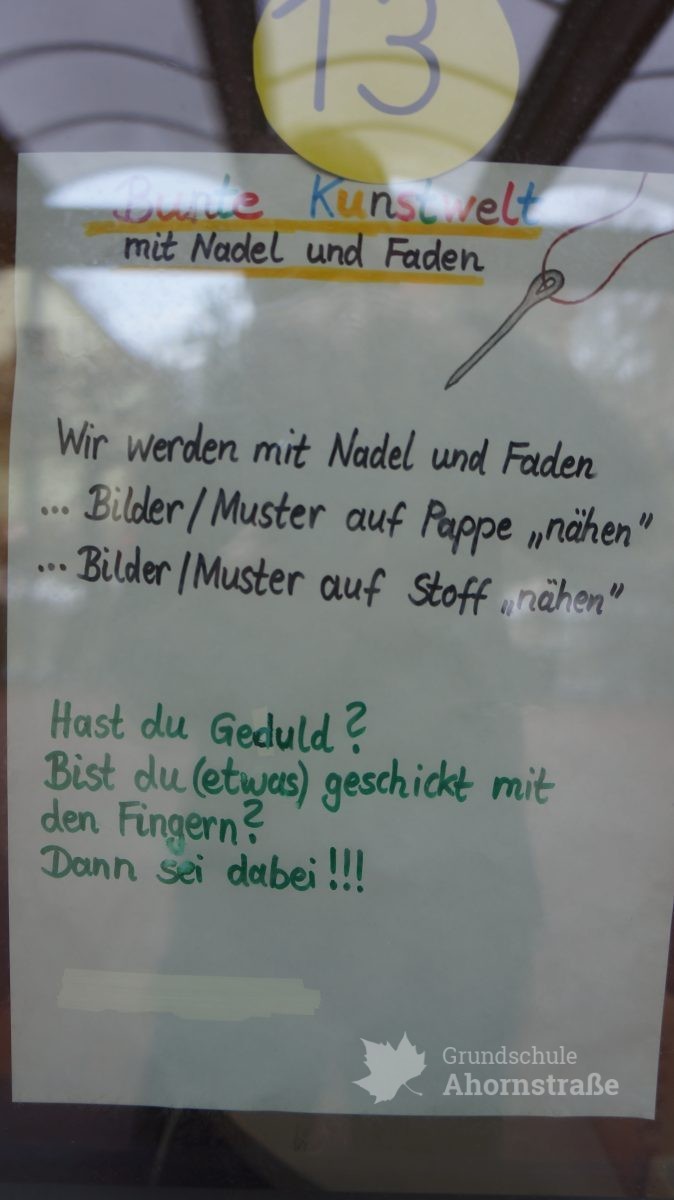 13
Bunte Kunstwelt
mit Nadel und Faden
Wir werden mit Nadel und Faden
... Bilder/Muster auf Pappe „nähen”
... Bilder/Muster auf Stoff „nähen”
Hast du Geduld?
Bist du (etwas) geschickt mit
den Fingern?
Dann sei dabei!!!
Grundschule
Ahornstraße